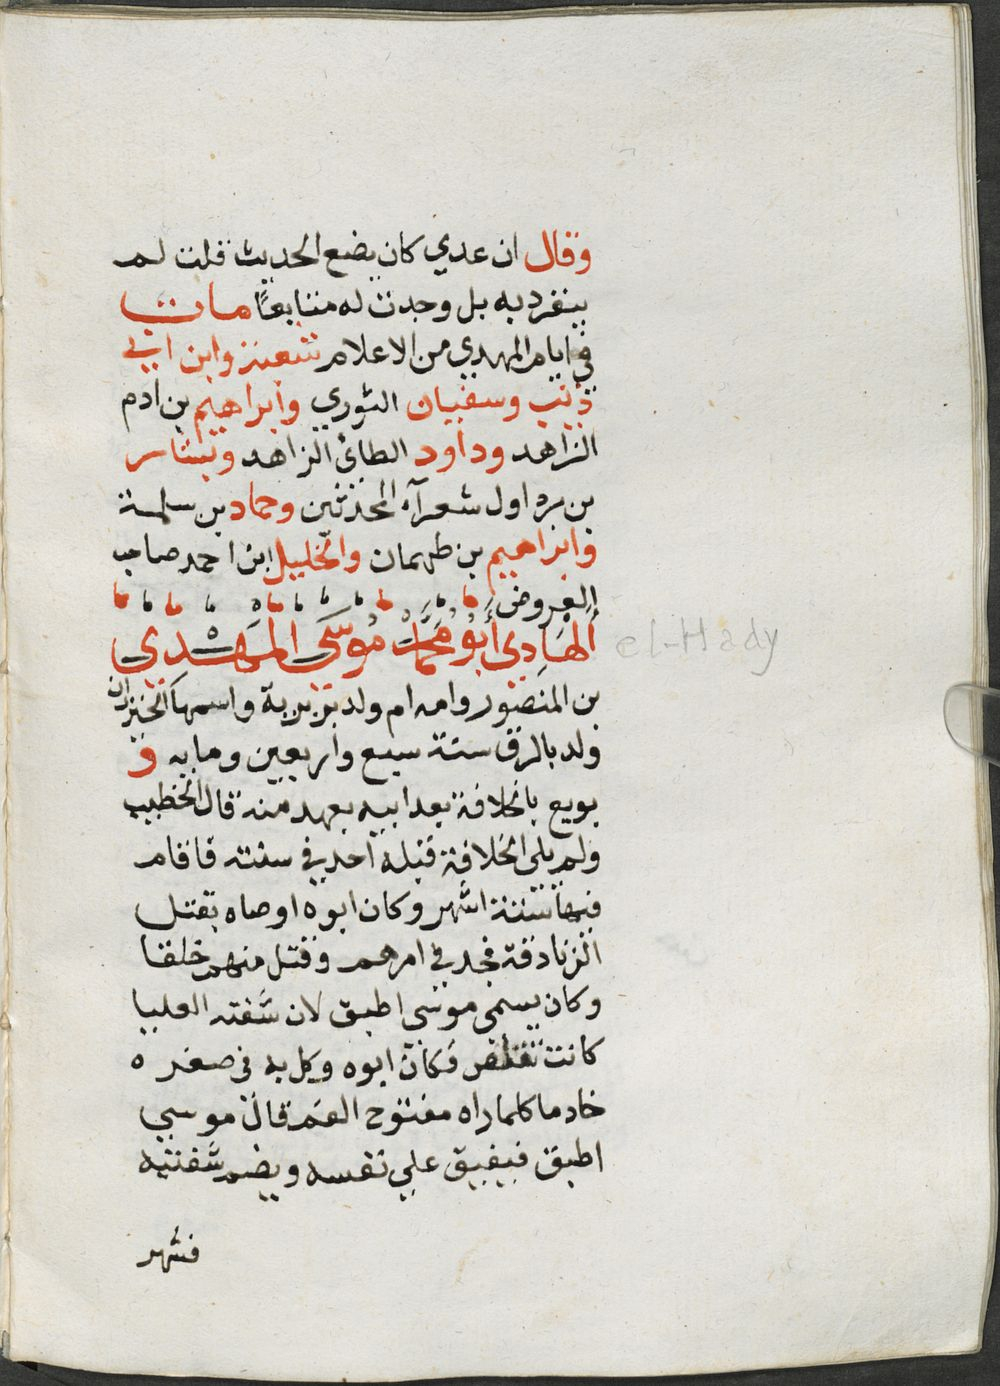 وقال ان عدي كان يضع الحديث قلت لم
ينفرد به بل وجدت له متابعاً مات
في ايام المهدي من الاعلام شعبة وابن ابي
ذئب وسفيان الثوري وابراهيم بن ادم
الزاهد وداود الطائ الزاهد وبشار
بن برد اول شعرآء المحدثين وحماد بن سلمة
وابراهيم بن طهمان والخليل ابن احمد صاحب
العروض
الهَادِي أبو محمَّد مُوسَى المهْدي
el-Hady
بن المنصور وامه ام ولد بربرية واسمها الخيزران
ولد بالرى سنة سبع واربعين ومايه و
بويع بالخلافة بعد ابيه بعهد منه قال الخطيب
ولم يلى الخلافة قبله احد في سنته فاقام
فيها سنة اشهر وكان ابوه اوصاه بقتل
الزنادقة فجد في امرهم وقتل منهم خلقا
وكان يسمى موسى اطبق لان شفته العليا
كانت تقلص فكان ابوه وكل به في صغره
خادما كلما راه مفتوح الفم قال موسي
اطبق فيفيق علي نفسه ويضم شفتيه
فشهر